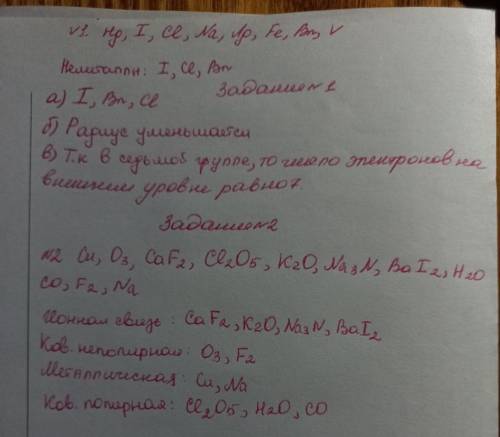 v1. Hg, I, Cl, Na, Ag, Fe, Br, V
Неметаллы: I, Cl, Br
Задание №1
а) I, Br, Cl
б) Радиус уменьшается
в) Т.к в седьмой группе, то число электронов на
внешнем уровне равно 7.
Задание №2
№2 Cu, O3, CaF2, Cl2O5, K2O, Na3N, BaI2, H2O
CO, F2, Na
Ионная связь: CaF2, K2O, Na3N, BaI2
Ков. неполярная: O3, F2
Металлическая: Cu, Na
Ков. полярная: Cl2O5, H2O, CO